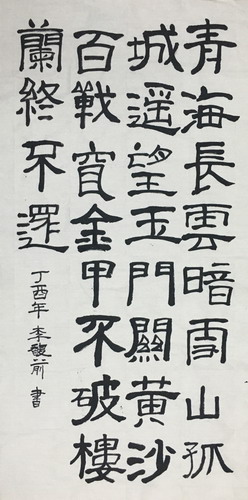 青海長雲暗雪山孤
城遥望玉門關黄沙
百戰穿金甲不破樓
蘭終不還
丁酉年 李前 書